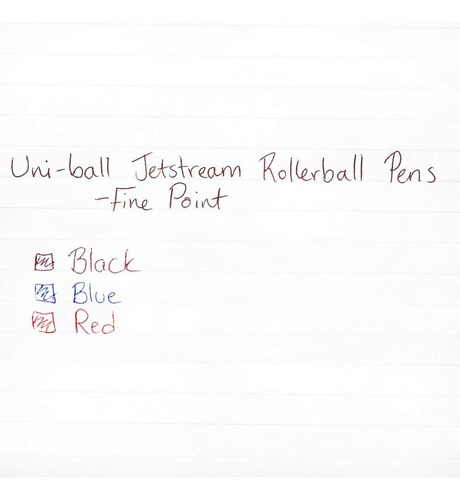 Uni-ball Jetstream Rollerball Pens
-Fine Point
Black
Blue
Red